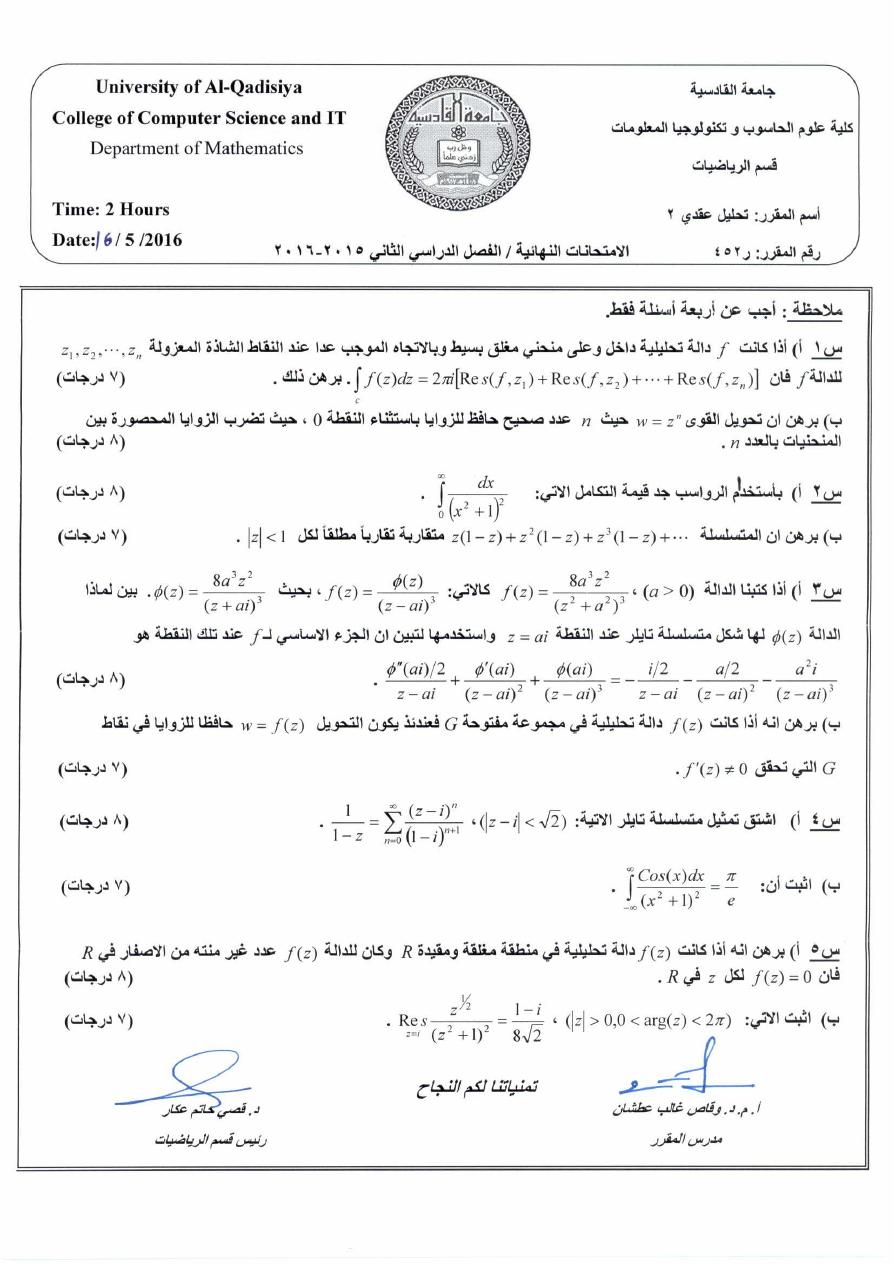 University of Al-Qadisiya
College of Computer Science and IT
Department of Mathematics
Time: 2 Hours
Date:16/ 5 /2016
جامعة القادسية
وقل رب زدني علما
جامعة القادسية
كلية علوم الحاسوب و تكنولوجيا المعلومات
قسم الرياضيات
أسم المقرر: تحليل عقدي ٢
رقم المقرر: ر٤٥٢
الامتحانات النهائية / الفصل الدراسي الثاني ٢٠١٥-٢٠١٦
ملاحظة : أجب عن أربعة أسئلة فقط.
س١ أ) أذا كانت f دالة تحليلية داخل وعلى منحني مغلق بسيط وبالاتجاه الموجب عدا عند النقاط الشاذة المعزولة z₁, z₂, ⋯, zₙ
للدالة f فان ∫_c f(z)dz = 2πi[Res(f,z₁)+Res(f,z₂)+⋯+Res(f,zₙ)] . برهن ذلك . (٧ درجات)
ب) برهن ان تحويل القوى w = zⁿ حيث n عدد صحيح حافظ للزوايا باستثناء النقطة 0 ، حيث تضرب الزوايا المحصورة بين
المنحنيات بالعدد n . (٨ درجات)
س٢ أ) بأستخدام الرواسب جد قيمة التكامل الاتي: ∫_0^∞ dx/(x²+1)² . (٨ درجات)
ب) برهن ان المتسلسلة z(1−z)+z²(1−z)+z³(1−z)+⋯ متقاربة تقارباً مطلقاً لكل |z|<1 . (٧ درجات)
س٣ أ) أذا كتبنا الدالة f(z) = 8a³z²/(z²+a²)³ ، (a > 0) كالاتي: f(z) = φ(z)/(z−ai)³ ، بحيث φ(z) = 8a³z²/(z+ai)³ . بين لماذا
الدالة φ(z) لها شكل متسلسلة تايلر عند النقطة z = ai واستخدمها لتبين ان الجزء الاساسي لـ f عند تلك النقطة هو
φ″(ai)/2/(z−ai) + φ′(ai)/(z−ai)² + φ(ai)/(z−ai)³ = − (i/2)/(z−ai) − (a/2)/(z−ai)² − a²i/(z−ai)³ . (٨ درجات)
ب) برهن انه أذا كانت f(z) دالة تحليلية في مجموعة مفتوحة G فعندئذ يكون التحويل w = f(z) حافظا للزوايا في نقاط
G التي تحقق f′(z) ≠ 0 . (٧ درجات)
س٤ أ) اشتق تمثيل متسلسلة تايلر الاتية: 1/(1−z) = Σ_{n=0}^∞ (z−i)ⁿ/(1−i)ⁿ⁺¹ ، (|z−i| < √2) . (٨ درجات)
ب) اثبت أن: ∫_{−∞}^∞ Cos(x)dx/(x²+1)² = π/e . (٧ درجات)
س٥ أ) برهن انه أذا كانت f(z) دالة تحليلية في منطقة مغلقة ومقيدة R وكان للدالة f(z) عدد غير منته من الاصفار في R
فان f(z) = 0 لكل z في R . (٨ درجات)
ب) اثبت الاتي: Res_{z=i} z^{1/2}/(z²+1)² = (1−i)/(8√2) ، (|z| > 0,0 < arg(z) < 2π) . (٧ درجات)
تمنياتنا لكم النجاح
أ.م.د. وقاص غالب عطشان
مدرس المقرر
د. قصي حاتم عكار
رئيس قسم الرياضيات